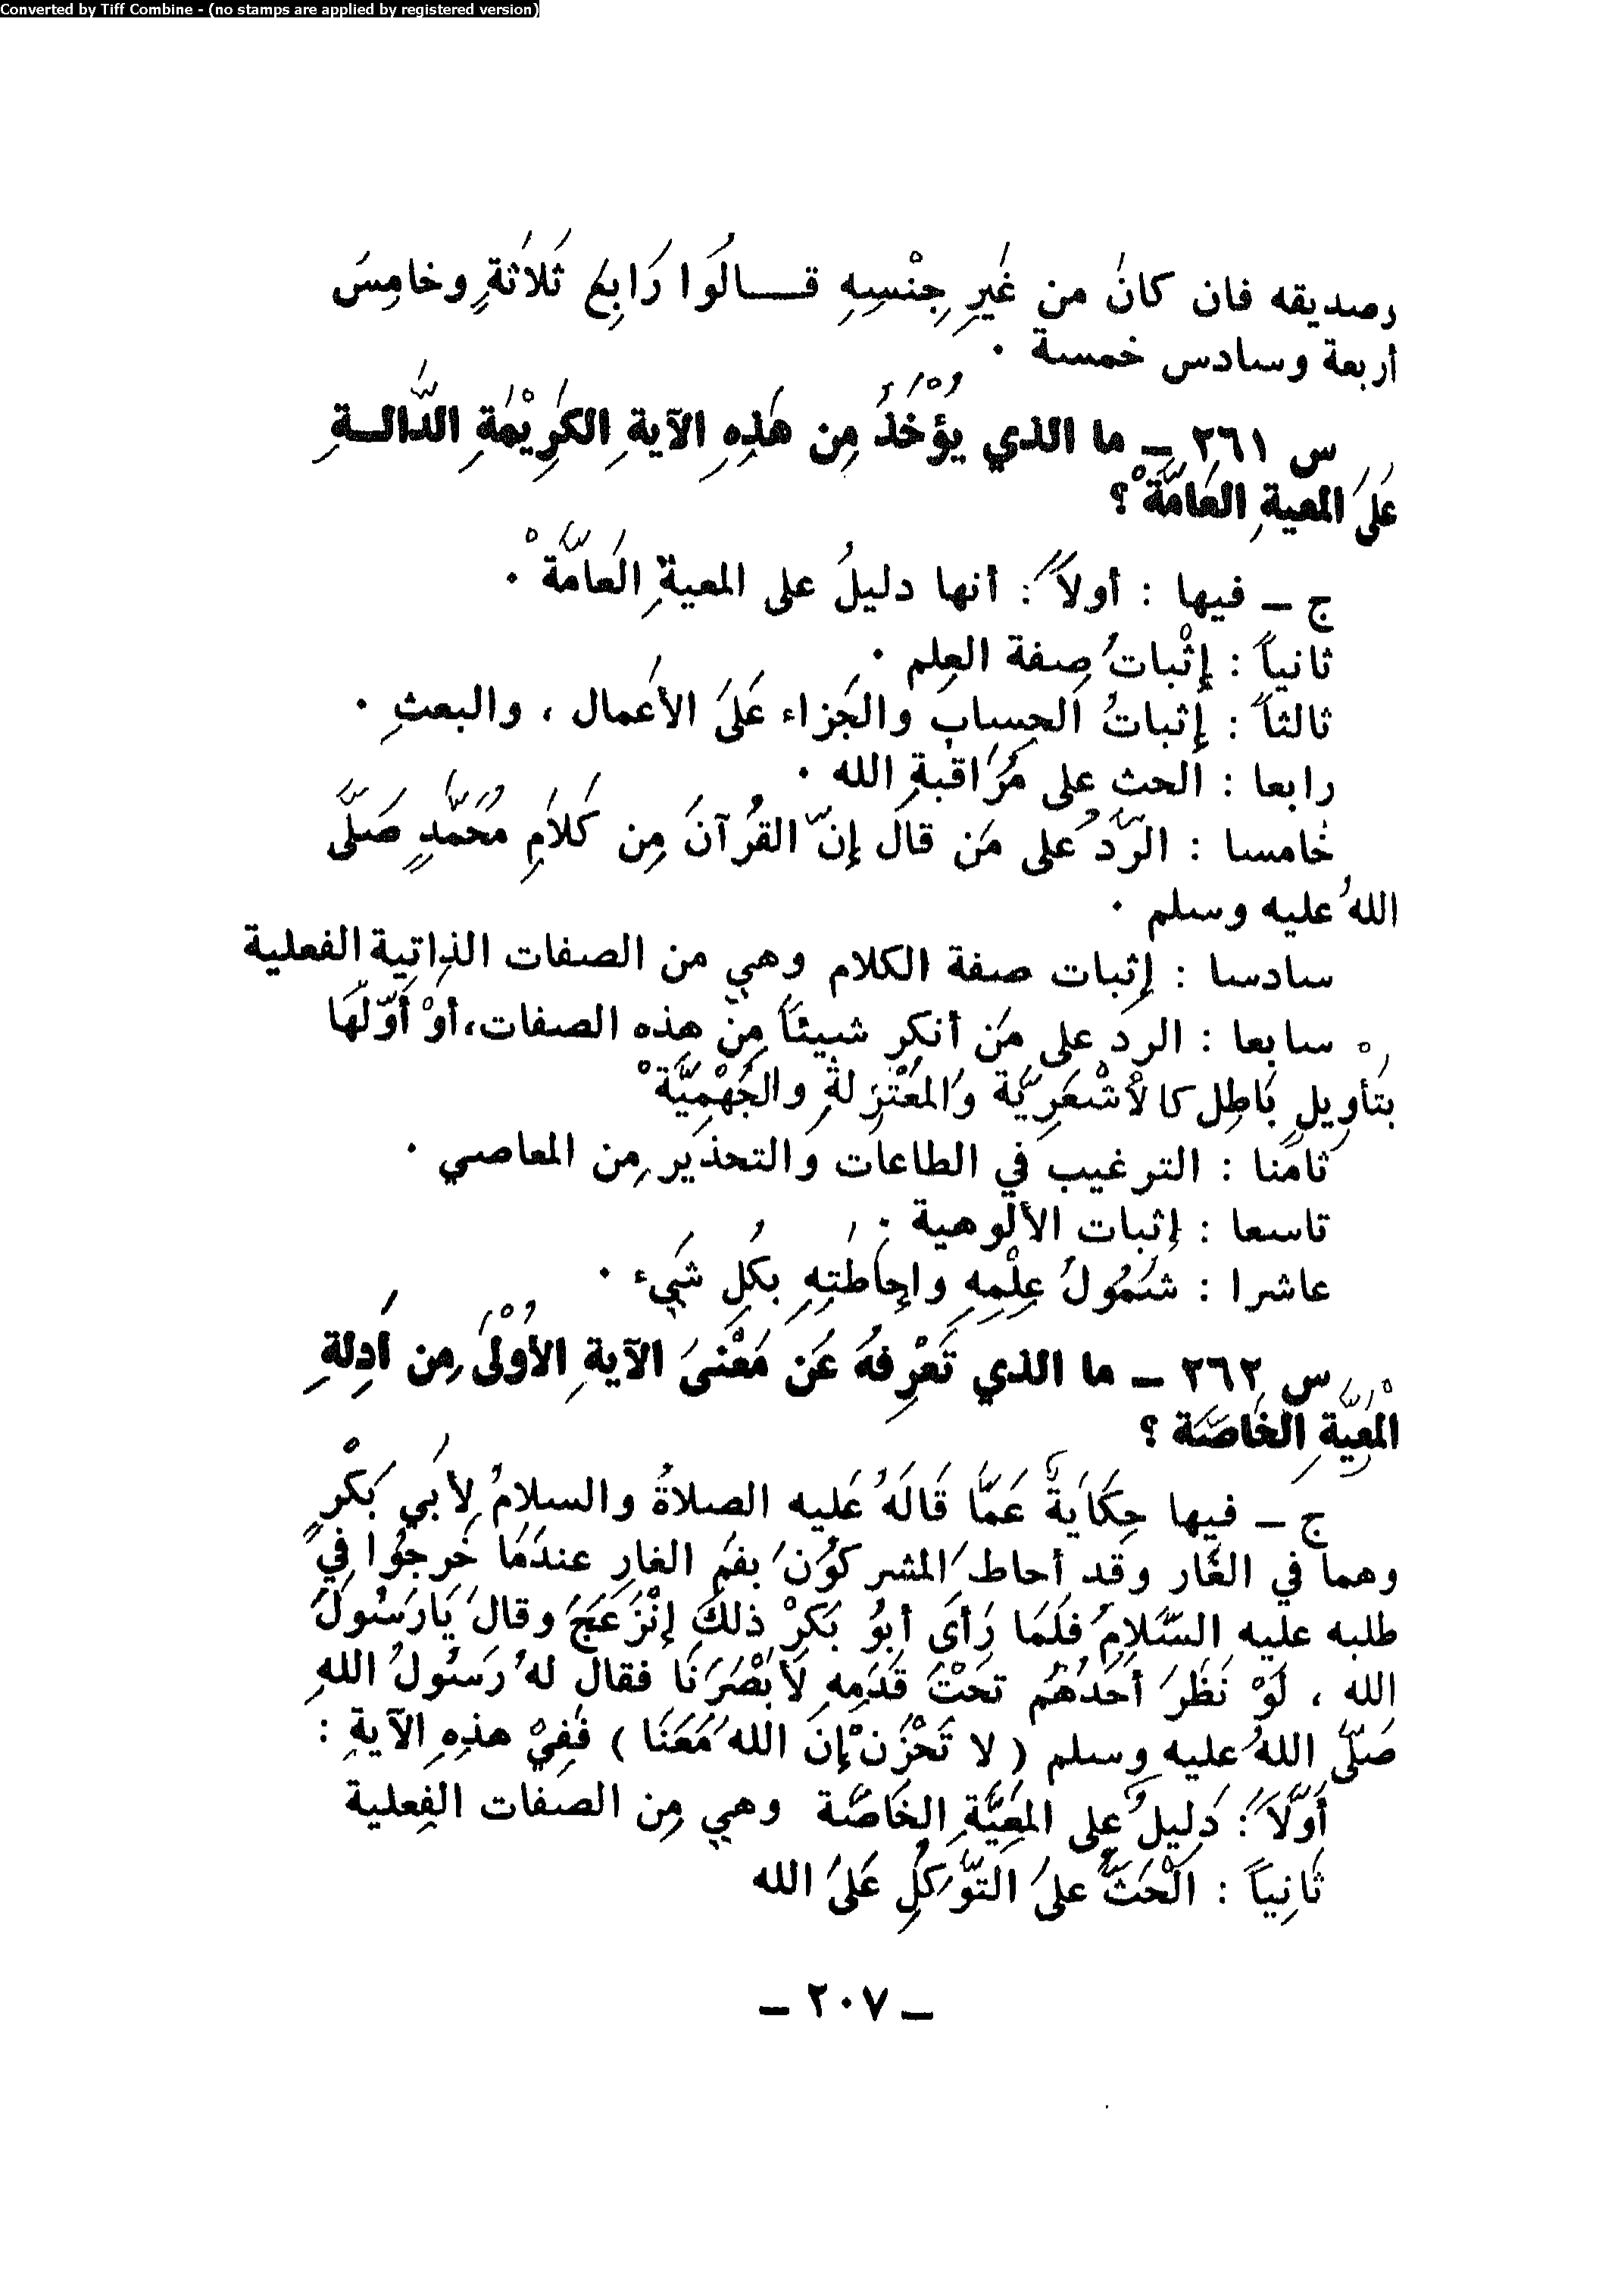 Converted by Tiff Combine - (no stamps are applied by registered version)
وصديقه فان كانَ من غَيرِ جِنْسِهِ قـــالَوا رَابِعَ ثَلاثةٍ وخامِسَ
أربعة وسادس خمسة .
س ٢٦١ ـ ما الذي يُؤْخَذُ مِن هَذِهِ الآيةِ الكَرِيْمَةِ الدَّالــةِ
عَلَى المعيةِ العَامَّةْ ؟
ج ـ فيها : أولاً : أنها دليلُ على المعيةِ العَامَّةْ .
ثانياً : إِثْباتُ صِفة العِلم .
ثالثاً : إِثباتُ الحِسابِ والجَزاء عَلَىَ الأعمال ، والبعثِ .
رابعا : الحث على مُرَاقبةِ الله .
خامسا : الرَّدُ على مَن قالَ إنّ القُرآنَ مِن كَلامِ مُحَمَّدٍ صَلَّى
اللهُ عليه وسلم .
سادسا : إثبات صفة الكلام وهي من الصفات الذاتية الفعلية
سابعا : الرد على مَن أنكر شيئاً مِنْ هذه الصفات، أوْ أوّلَها
بتأويلٍ بَاطِل كالأشْعَرِيَّة وَالمُعْتَزِلةِ والجَهْمِيَّةْ
ثامنا : الترغيب في الطاعات والتحذير مِن المعاصي .
تاسعا : إثبات الألوهية .
عاشرا : شُمُولُ عِلْمِهِ وإِحَاطَتِهِ بكُلِ شَيء .
س ٢٦٢ ـ ما الذي تَعْرِفهُ عَن مَعْنىَ الآيةِ الأُوْلَى مِن أَدِلةِ
الْمَعِيَّةِ الخَاصَة ؟
ج ـ فيها حِكَايَةً عَمَّا قَالَهُ عَليه الصلاةُ والسلامُ لِأبَي بَكْرٍ
وهما في الغَار وقد أحاط المُشركوُنَ بفمَ الغارِ عندَمَا خَرجوُا فِي
طلبه عليه السَّلامُ فلَمَا رَأىَ أبوُ بَكرْ ذلكَ إنْزَعَجَ وقالَ يَارَسُولَ
الله ، لَوْ نَظَرَ أحَدُهُم تحَتْ قَدَمِهِ لَأبْصَرَنَا فقالَ لهُ رَسُولُ اللهِ
صَلّى اللهُ عليه وسلم ( لا تَحْزَنْ إنَ اللهَ مَعَنَا ) فَفِيْ هذهِ الآيةِ :
أوّلَاً : دَلِيلُ على المعَيَّةِ الخَاصَّة وهي مِن الصفات الفِعلية
ثَانِياً : الْحَثَّ علىُ التَّوَكلِ عَلىَ الله
ـ ٢٠٧ ـ